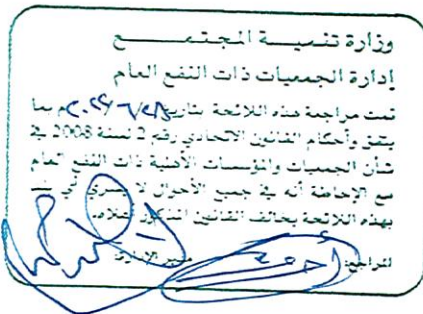 وزارة تنميـــة المجتمـــــــع
إدارة الجمعيات ذات النفع العام
تمت مراجعة هذه اللائحة بتاريخ م بما
يتفق وأحكام القانون الاتحادي رقم 2 لسنة 2008 في
شأن الجمعيات والمؤسسات الأهلية ذات النفع العام
مع الإحاطة أنه في جميع الأحوال لا يسري أي نص
بهذه اللائحة يخالف القانون المذكور أعلاه
المراجع: مدير الإدارة